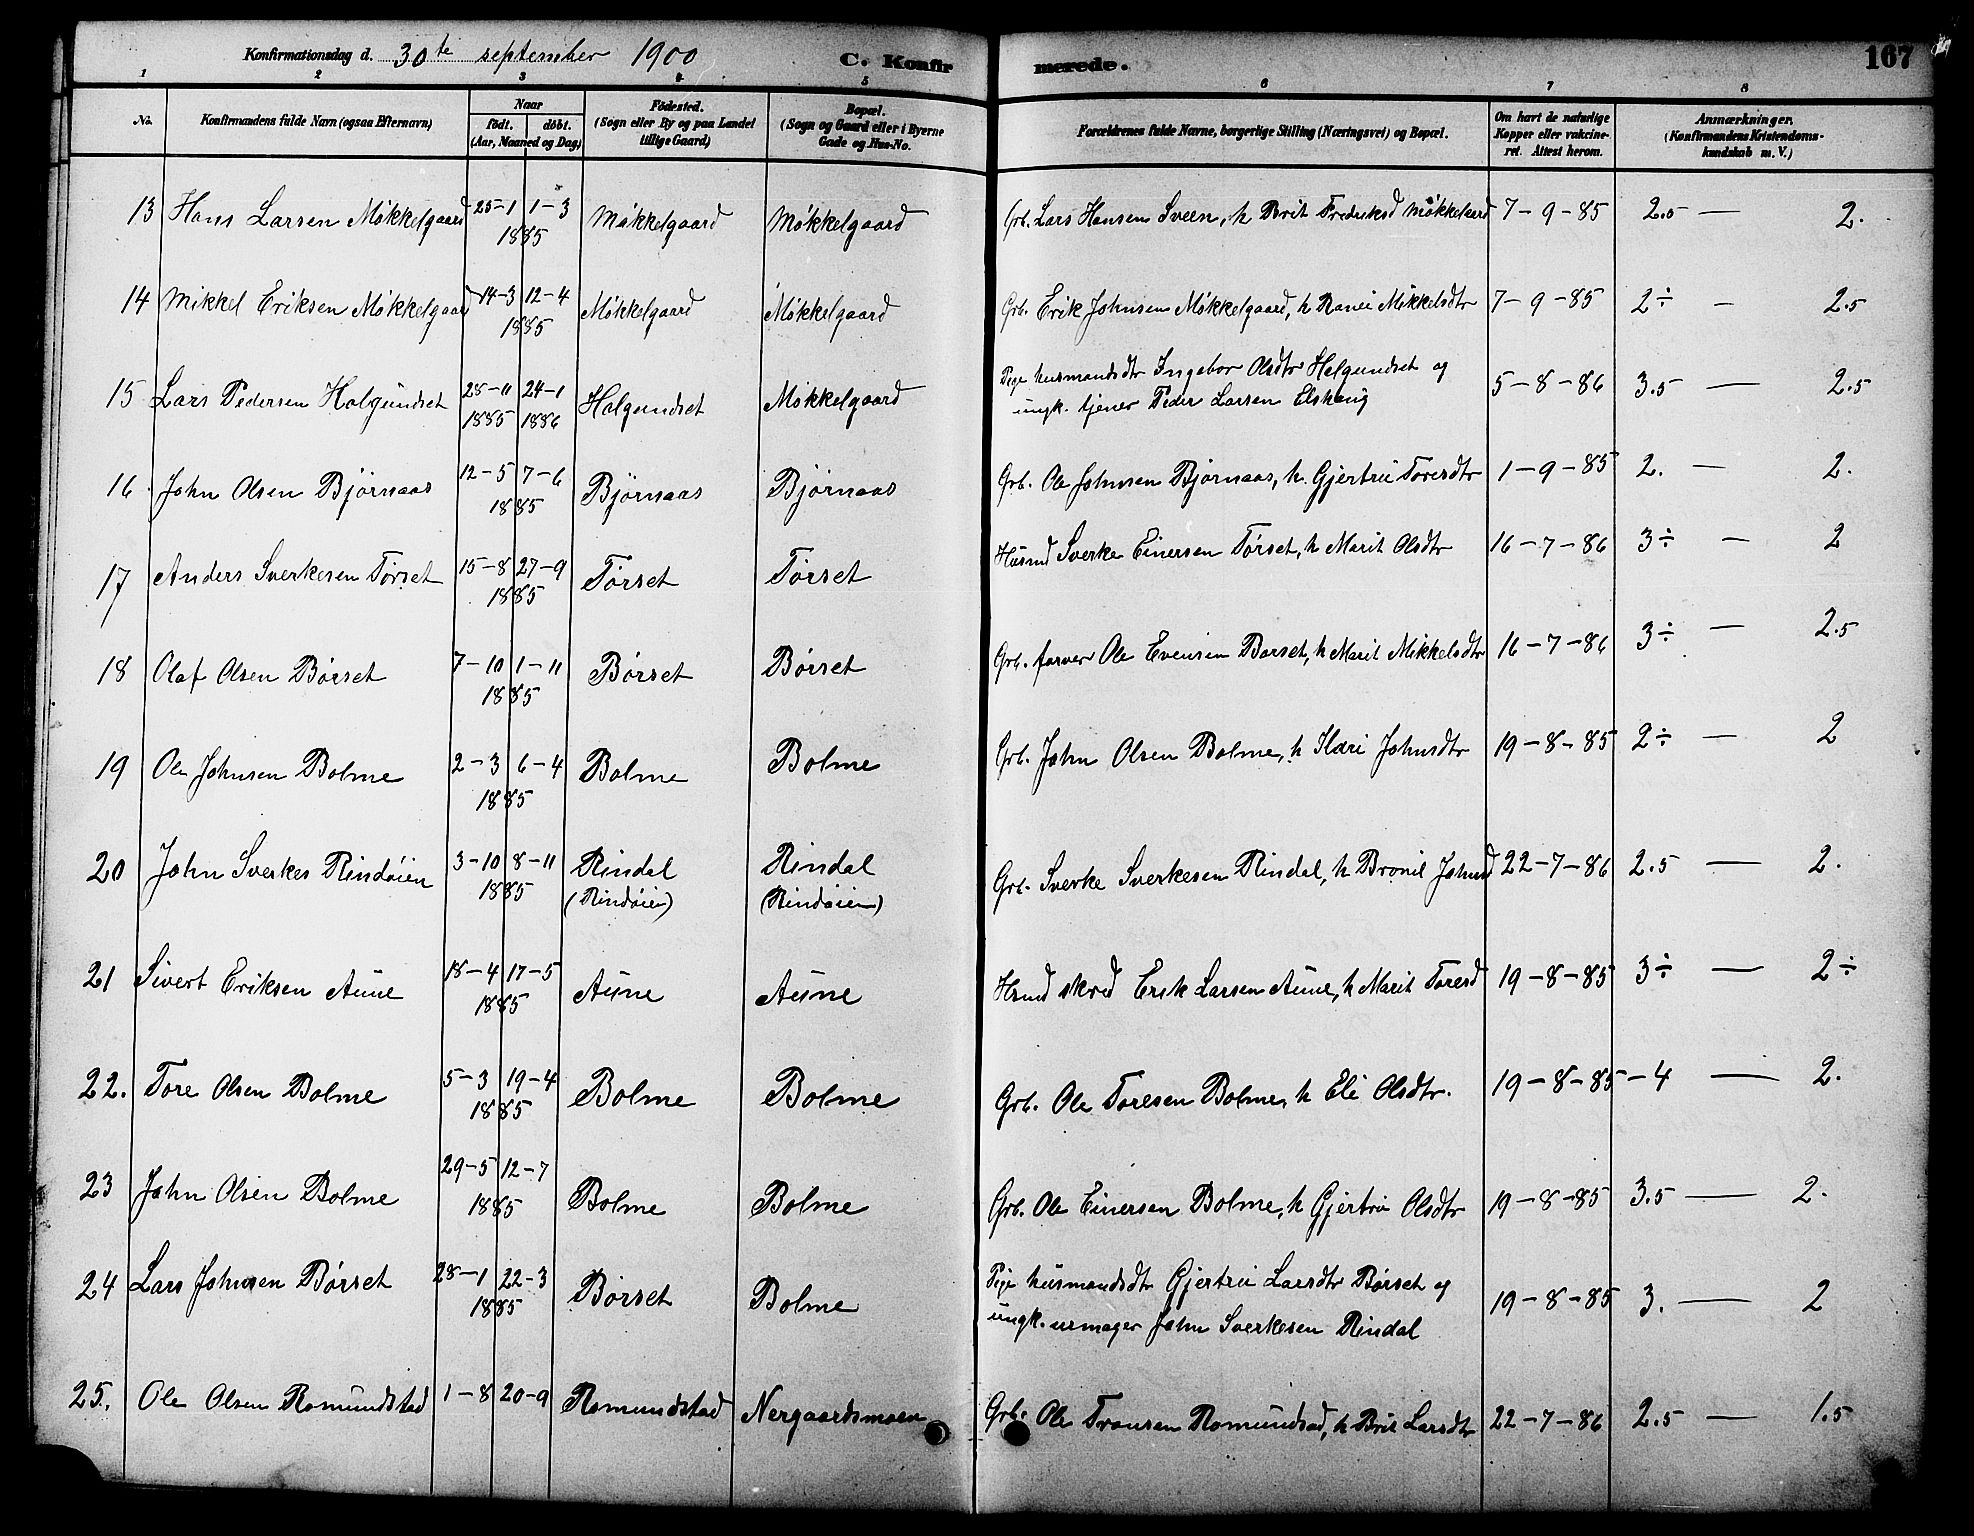 Konfirmationsdag d. 30te september 1900
C. Konfirmerede.
167
1 2 3 4 5 6 7 8
No. Konfirmandens fulde Navn (ogsaa Efternavn) Naar født. døbt. (Aar, Maaned og Dag) Fødested. (Sogn eller By og paa Landet tillige Gaard) Bopæl. (Sogn og Gaard eller i Byerne Gade og Hus-No. Forældrenes fulde Navne, borgerlige Stilling (Næringsvei) og Bopæl. Om havt de naturlige Kopper eller vakcineret. Attest herom. Anmærkninger. (Konfirmandens Kristendomskundskab m. V.)
13 Hans Larsen Møkkelgaard 25-1 1-3 1885 Møkkelgaard Møkkelgaard Grb. Lars Hansen Sveen, h Brit Fredriksd Møkkelgard 7-9-85 2.5 — 2.
14 Mikkel Eriksen Møkkelgaard 14-3 12-4 1885 Møkkelgaard Møkkelgaard Grb. Erik Johnsen Møkkelgaard, h Ranei Mikkelsdtr 7-9-85 2÷ — 2.5
15 Lars Pedersen Halgundset 28-11 1885 24-1 1886 Halgundset Møkkelgaard Pige husmandsdtr Ingebor Olsdtr Halgundset og
ungk. tjener Peder Larsen Elshaug 5-8-86 3.5 — 2.5
16. John Olsen Bjørnaas 12-5 7-6 1885 Bjørnaas Bjørnaas Grb. Ole Johnsen Bjørnaas, h. Gjertru Toresdtr 1-9-85 2. — 2.
17 Anders Sverkesen Tørset 15-8 27-9 1885 Tørset Tørset Husmd Sverke Einersen Tørset, h Marit Olsdtr 16-7-86 3÷ — 2
18 Olaf Olsen Børset 7-10 1-11 1885 Børset Børset Grb. farver Ole Evensen Børset, h Marit Mikkelsdtr 16-7-86 3÷ — 2.5
19 Ole Johnsen Bolme 2-3 6-4 1885 Bolme Bolme Grb. John Olsen Bolme, h Ildri Johnsdtr 19-8-85 2÷ — 2
20 John Sverkes Rindøien 3-10 8-11 1885 Rindal (Rindøien) Rindal (Rindøien) Grb. Sverke Sverkesen Rindal, h Bronil Johnsd 22-7-86 2.5 — 2.
21 Sivert Eriksen Aune 18-4 17-5 1885 Aune Aune Hmd skred Erik Larsen Aune, h Marit Toresd 19-8-85 3÷ — 2÷
22. Tore Olsen Bolme 5-3 19-4 1885 Bolme Bolme Grb. Ole Toresen Bolme, h Eli Olsdtr. 19-8-85 - 4 — 2.
23 John Olsen Bolme 29-5 12-7 1885 Bolme Bolme Grb. Ole Einersen Bolme, h Gjertru Olsdtr 19-8-85 3.5 — 2.
24 Lars Johnsen Børset 28-1 22-3 1885 Børset Bolme Pige husmandsdtr Gjertru Larsdtr Børset og
ungk. urmager John Sverkesen Rindal 19-8-85 3. — 2
25. Ole Olsen Romundstad 1-8 20-9 Romundstad Nergaardsmoen Grb. Ole Tronsen Romundsad, h Brit Larsdtr 22-7-86 2.5 — 1.5